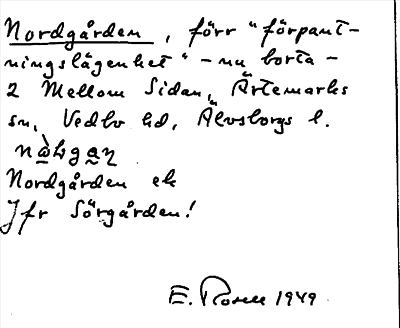 Nordgården, förr "förpant-
ningslägenhet" - nu borta -
2 Mellom Sidan, Ärtemarks
sn, Vedbo hd, Älvsborgs l.
Nordgården ek
Jfr Sörgården!
E. Rosell 1949